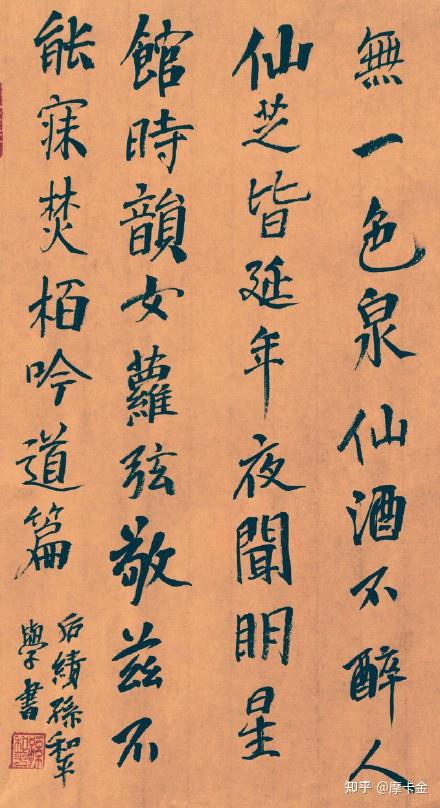 無一色泉仙酒不醉人
仙芝皆延年夜聞明星
館時韻女蘿弦敬茲不
能寐焚栢吟道篇
孫和平
學書
知乎 @摩卡金